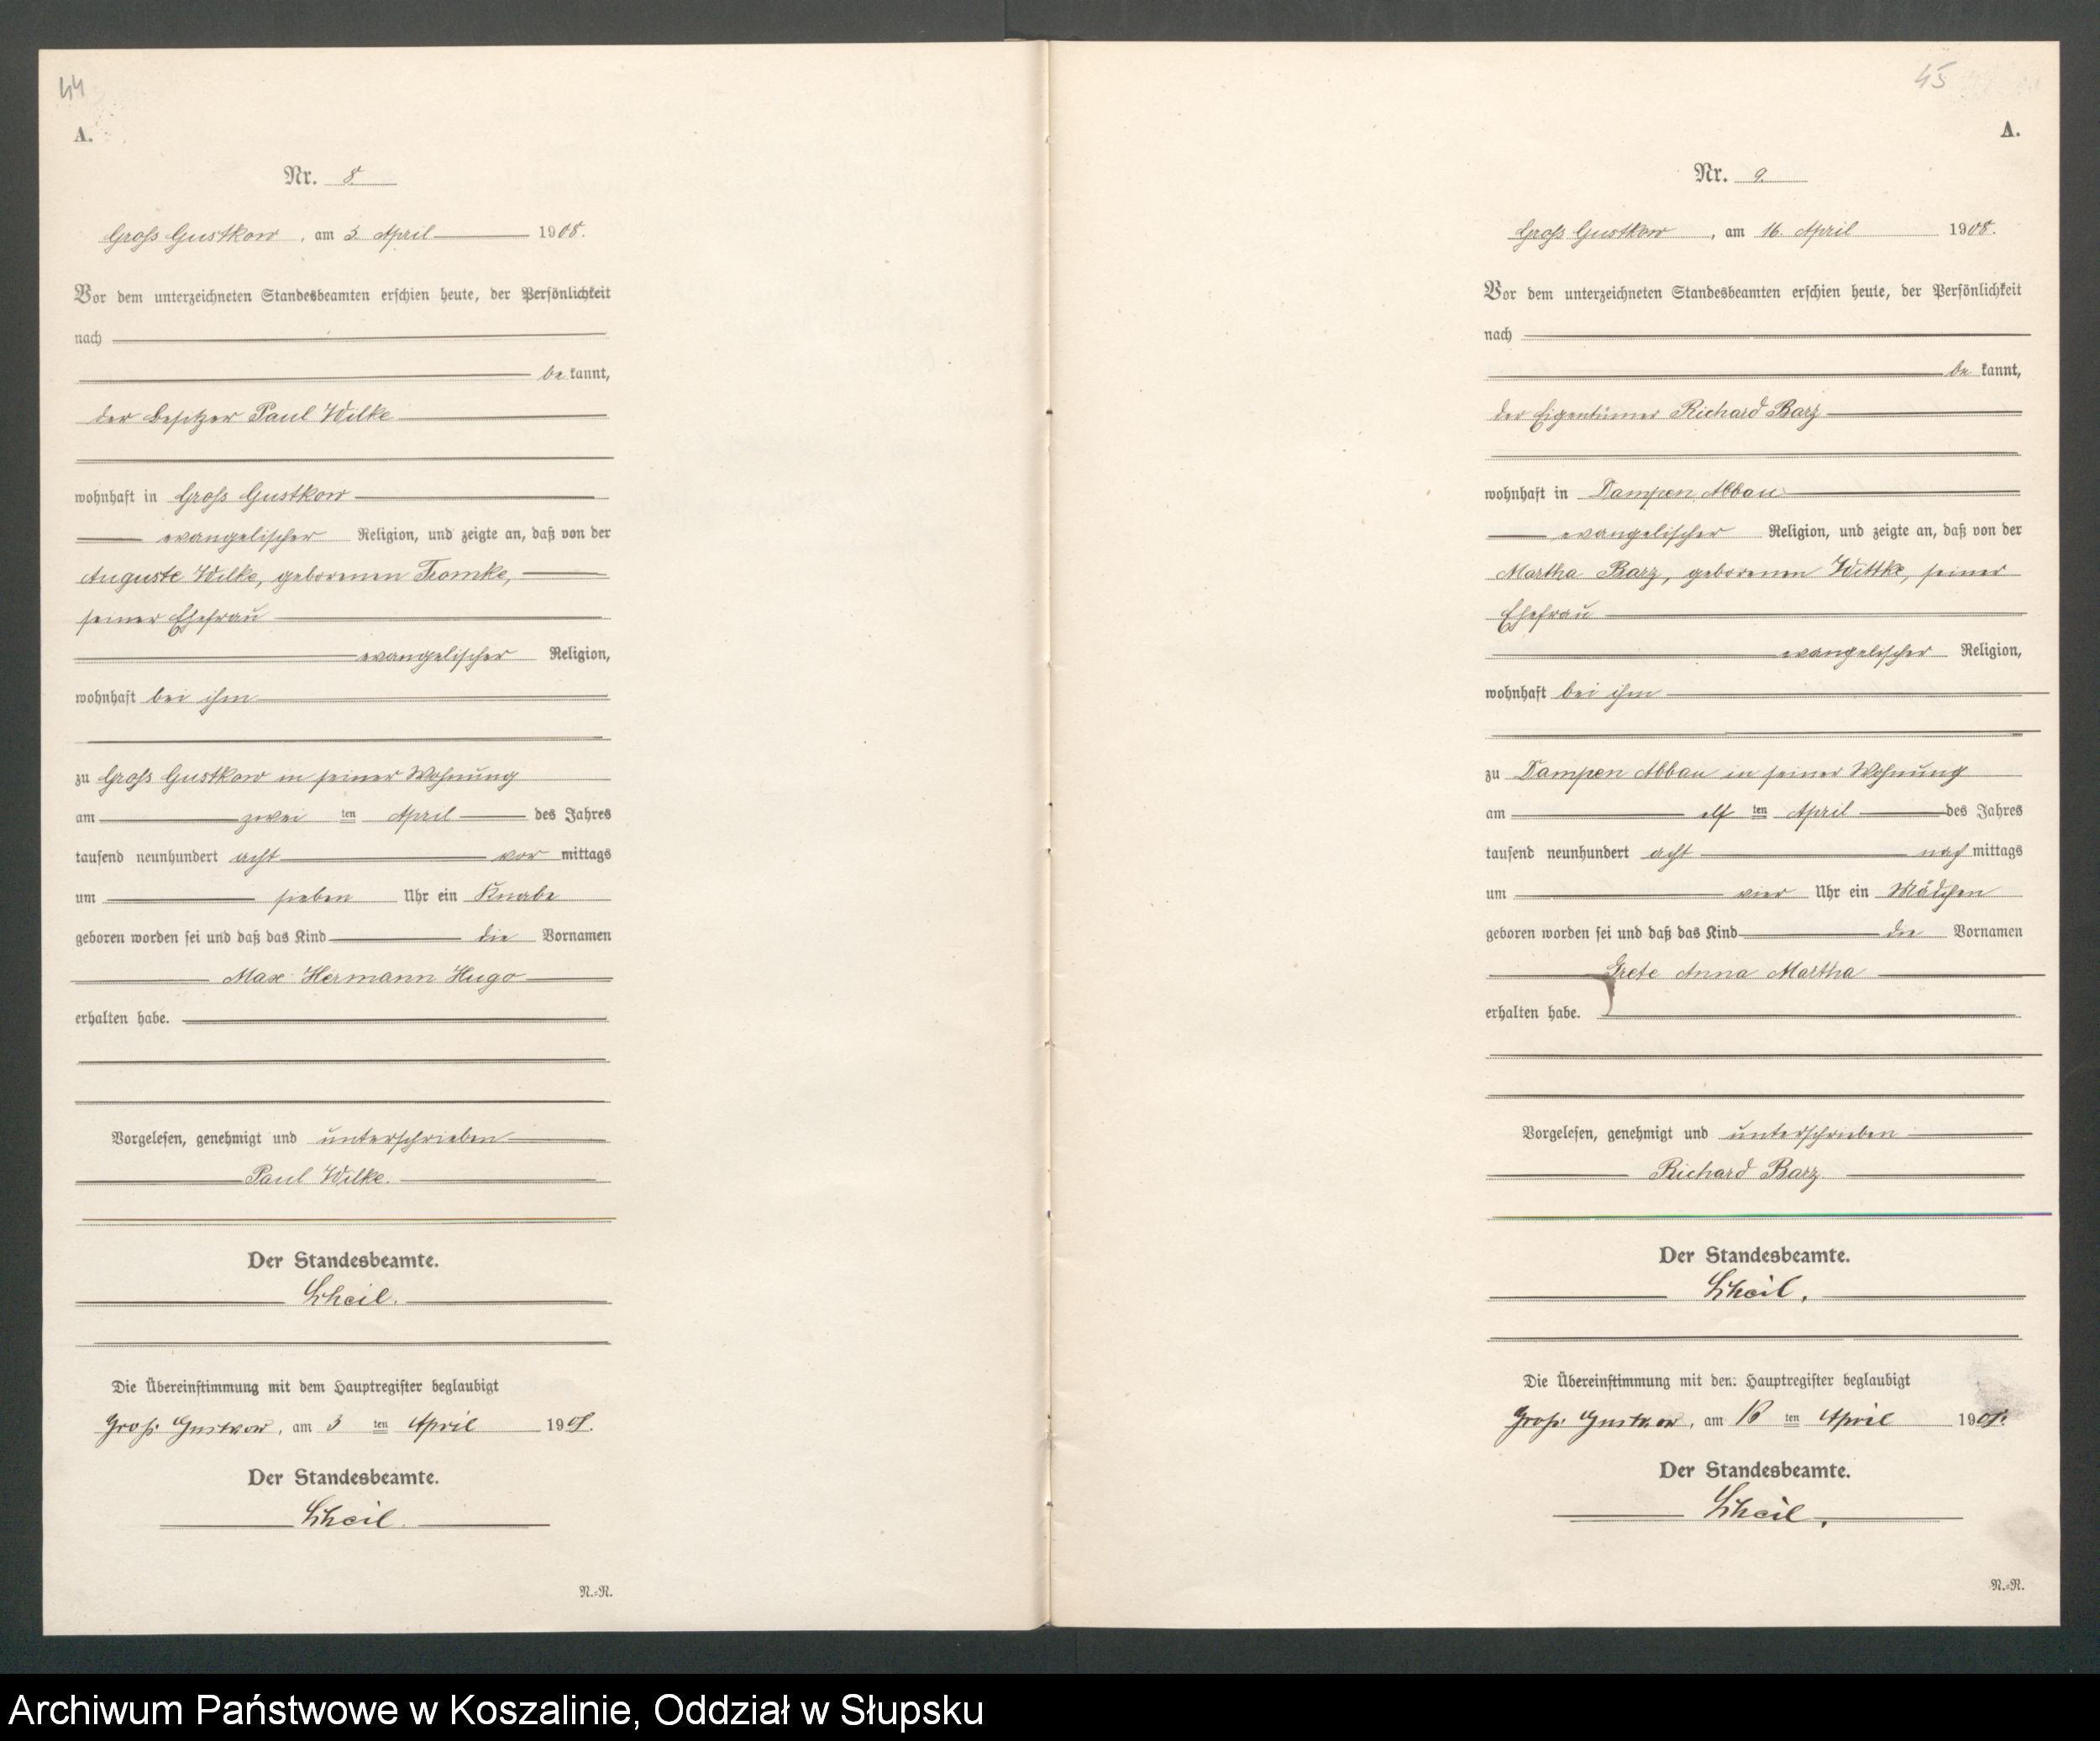 44
A.
Nr. 8.
Groß Gustkow, am 3. April 1908.
Vor dem unterzeichneten Standesbeamten erschien heute, der Persönlichkeit
nach
bekannt,
der Besitzer Paul Wilke
wohnhaft in Groß Gustkow
evangelischer Religion, und zeigte an, daß von der
Auguste Wilke, geborenen Tromke,
seiner Ehefrau
evangelischer Religion,
wohnhaft bei ihm
zu Groß Gustkow in seiner Wohnung
am zwei ten April des Jahres
tausend neunhundert acht vor mittags
um sieben Uhr ein Knabe
geboren worden sei und daß das Kind die Vornamen
Max Hermann Hugo
erhalten habe.
Vorgelesen, genehmigt und unterschrieben
Paul Wilke.
Der Standesbeamte.
Die Übereinstimmung mit dem Hauptregister beglaubigt
Groß Gustkow, am 3 ten April 1908.
Der Standesbeamte.
N.-N.
45
A.
Nr. 9.
Groß Gustkow, am 16. April 1908.
Vor dem unterzeichneten Standesbeamten erschien heute, der Persönlichkeit
nach
bekannt,
der Eigentümer Richard Barz
wohnhaft in Dampen Abbau
evangelischer Religion, und zeigte an, daß von der
Martha Barz, geborenen Wittke, seiner
Ehefrau
evangelischer Religion,
wohnhaft bei ihm
zu Dampen Abbau in seiner Wohnung
am elf ten April des Jahres
tausend neunhundert acht nach mittags
um vier Uhr ein Mädchen
geboren worden sei und daß das Kind die Vornamen
Grete Anna Martha
erhalten habe.
Vorgelesen, genehmigt und unterschrieben
Richard Barz
Der Standesbeamte.
Die Übereinstimmung mit dem Hauptregister beglaubigt
Groß Gustkow, am 16 ten April 1908.
Der Standesbeamte.
N.-N.
Archiwum Państwowe w Koszalinie, Oddział w Słupsku